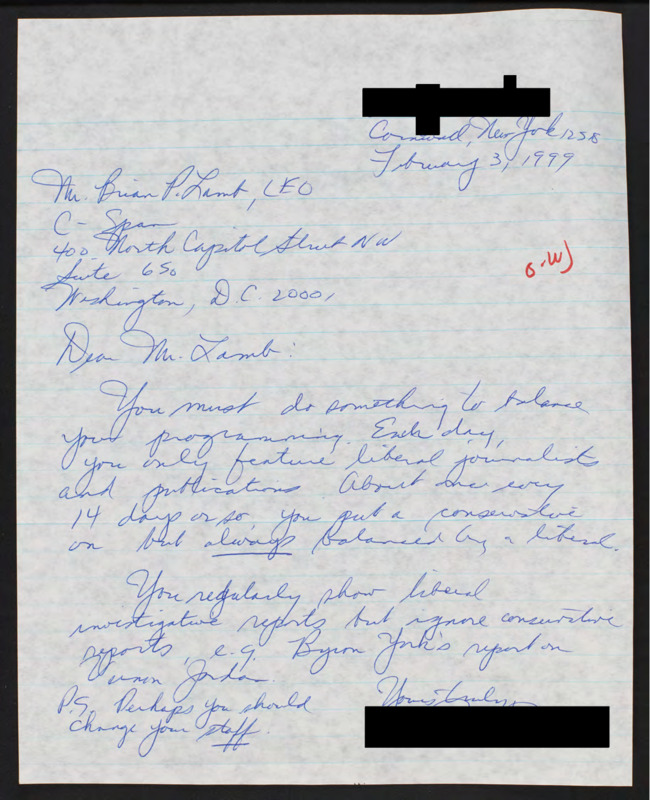 Cornwall, New York 1258
February 3, 1999
Mr. Brian P. Lamb, CEO
C-Span
400 North Capitol Street NW
Suite 650
Washington, D.C. 20001
Dear Mr. Lamb:
You must do something to balance
your programming. Each day,
you only feature liberal journalists
and publications. About once every
14 days or so you put a conservative
on but always balanced by a liberal.
You regularly show liberal
investigative reports but ignore conservative
reports, e.g. Byron York's report on
Vernon Jordan.
Yours truly,
P.S. Perhaps you should
change your staff.